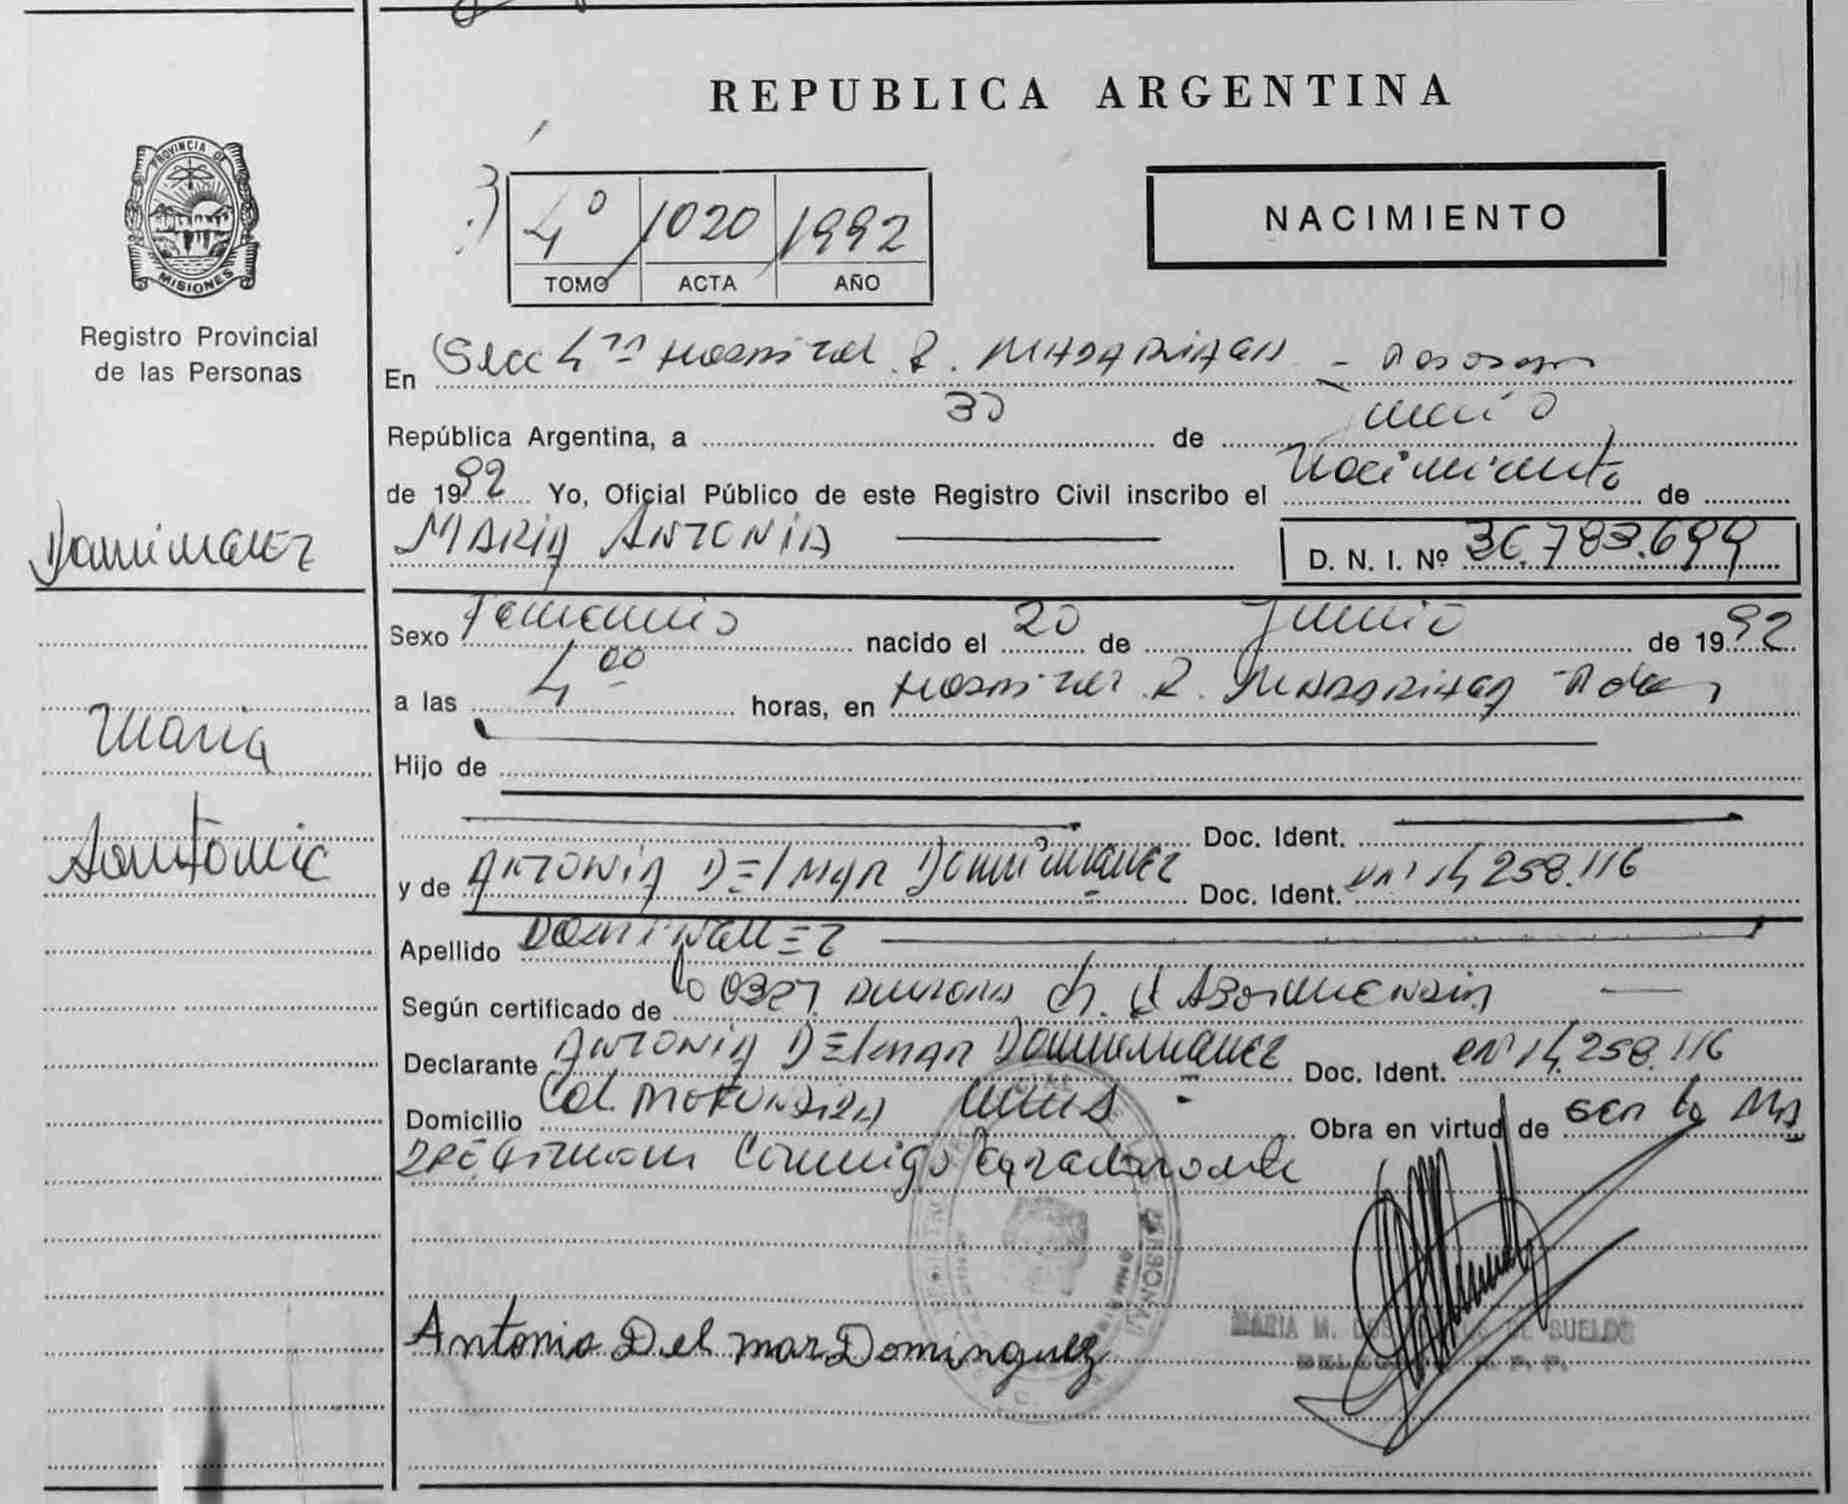 REPUBLICA ARGENTINA
PROVINCIA DE
MISIONES
Registro Provincial
de las Personas
4º 1020 1992
TOMO ACTA AÑO
NACIMIENTO
En Secc 4ta Hospital R. MADARIAGA - Posadas
República Argentina, a 30 de Junio
de 1992 Yo, Oficial Público de este Registro Civil inscribo el Nacimiento de
Dominguez
MARIA ANTONIA D. N. I. Nº 36.783.699
Sexo Femenino nacido el 20 de Junio de 1992
a las 4 00 horas, en Hospital R. MADARIAGA
Maria
Hijo de
Antonia
Doc. Ident.
y de ANTONIA DEL MAR Dominguez Doc. Ident. 14.258.116
Apellido DOMINGUEZ
Según certificado de
Declarante ANTONIA DEL MAR Dominguez Doc. Ident. 14.258.116
Domicilio Col. Obra en virtud de ser la
Conmigo la declarante
Antonia Del mar Dominguez
MARIA M. DE SUELDO